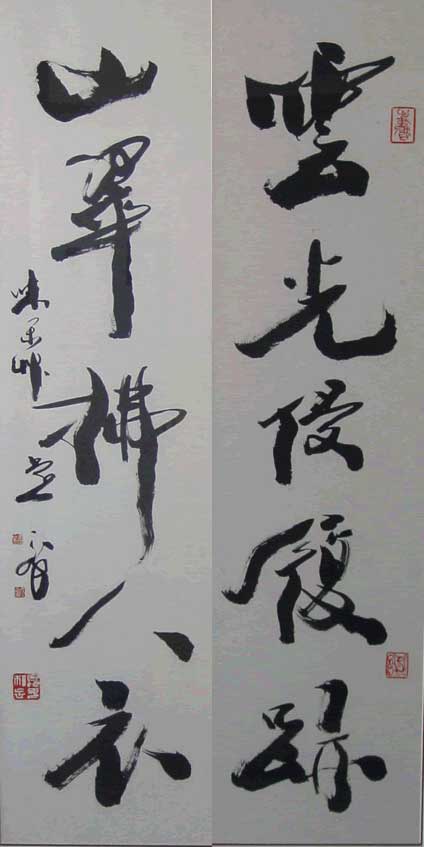 雲光侵履跡
山翠拂人衣